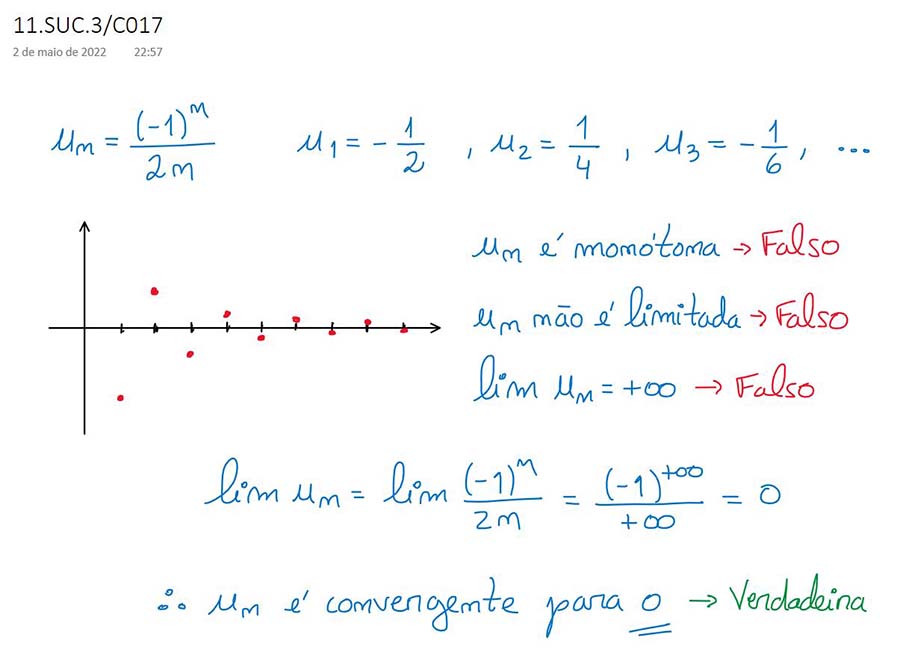 11.SUC.3/C017
2 de maio de 2022 22:57
uₙ = (-1)ⁿ/2n u₁ = -1/2 , u₂ = 1/4 , u₃ = -1/6 , ...
uₙ é monótona → Falso
uₙ não é limitada → Falso
lim uₙ = +∞ → Falso
lim uₙ = lim (-1)ⁿ/2n = (-1)^+∞/+∞ = 0
∴ uₙ é convergente para 0 → Verdadeira